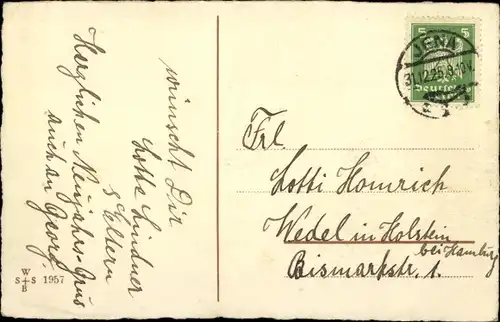 Herzlichen Neujahrs-Grus
auch an Georg
wünscht Dir
Lotte Lindner
& Eltern
W
S+S 1957
B
5 5
JENA
31.12.25.9-10V.
Frl
Lotti Homrich
Wedel in Holstein
bei Hamburg
Bismarkstr. 1.